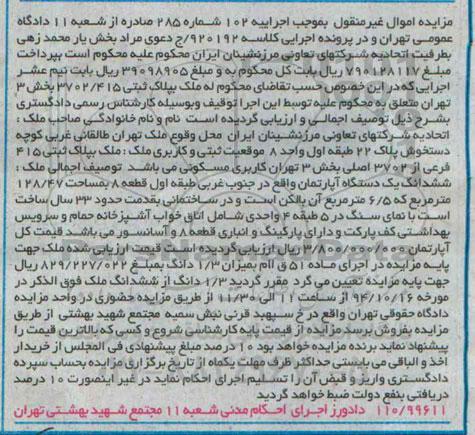 مزایده اموال غیرمنقول بموجب اجراییه ۱۰۲ شماره ۲۸۵ صادره از شعبه ۱۱ دادگاه
عمومی تهران و در پرونده اجرایی کلاسه ۹۲۰۱۹۲/ج دعوی مراد بخش یار محمد زهی
بطرفیت اتحادیه شرکتهای تعاونی مرزنشینان ایران محکوم علیه محکوم است بپرداخت
مبلغ ۷۹۰۱۲۸۱۱۷ ریال بابت کل محکوم به و مبلغ ۳۹۰۹۸۹۰۵ ریال بابت نیم عشر
اجرایی که در این خصوص حسب تقاضای محکوم له ملک بپلاک ثبتی ۳۷۰۲/۴۱۵ بخش ۳
تهران متعلق به محکوم علیه توسط این اجرا توقیف وبوسیله کارشناس رسمی دادگستری
بشرح ذیل توصیف اجمالی و ارزیابی گردیده است نام و نام خانوادگی صاحب ملک :
اتحادیه شرکتهای تعاونی مرزنشینان ایران محل وقوع ملک تهران طالقانی غربی کوچه
دستخوش پلاک ۲۲ طبقه اول واحد ۸ موقعیت ثبتی و کاربری ملک : ملک بپلاک ثبتی ۴۱۵
فرعی از ۳۷۰۲ اصلی بخش ۳ تهران کاربری مسکونی می باشد توصیف اجمالی ملک :
ششدانگ یک دستگاه آپارتمان واقع در جنوب غربی طبقه اول قطعه ۸ بمساحت ۱۲۸/۴۷
مترمربع که ۶/۵ مترمربع آن بالکن است و در ساختمانی بقدمت حدود ۳۳ سال ساخت
است با نمای سنگ در ۵ طبقه ۴ واحدی شامل اتاق خواب آشپزخانه حمام و سرویس
بهداشتی کف پارکت و دارای پارکینگ و انباری قطعه ۸ و آسانسور می باشد قیمت کل
آپارتمان ۳/۸۰۰/۰۰۰/۰۰۰ ریال ارزیابی گردیده است قیمت ارزیابی شده ملک جهت
پایه مزایده در اجرای ماده ۵۱ ق اام بمیزان ۱/۳ دانگ بمبلغ ۸۲۹/۲۲۷/۰۲۲ ریال
جهت پایه مزایده تعیین می گرد مقرر گردید ۱/۳ دانگ از ششدانگ ملک فوق الذکر در
مورخه ۹۴/۱۰/۱۶ از ساعت ۱۱ الی ۱۱/۳۰ از طریق مزایده حضوری در واحد مزایده
دادگاه حقوقی تهران واقع در خ سپهبد قرنی نبش سمیه مجتمع شهید بهشتی از طریق
مزایده بفروش برسد مزایده از قیمت پایه کارشناسی شروع و کسی که بالاترین قیمت را
پیشنهاد نماید برنده مزایده خواهد بود ۱۰ درصد مبلغ پیشنهادی فی المجلس از خریدار
اخذ و الباقی می بایستی حداکثر ظرف مهلت یکماه از تاریخ برگزاری مزایده بحساب سپرده
دادگستری واریز و قبض آن را تسلیم اجرای احکام نماید در غیر اینصورت ۱۰ درصد
دریافتی بنفع دولت ضبط خواهد گردید
۱۱۰/۹۹۶۱۱ دادورز اجرای احکام مدنی شعبه ۱۱ مجتمع شهید بهشتی تهران